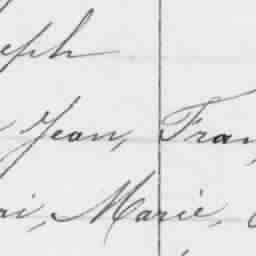 eph
Jean, Fran
ai, Marie,